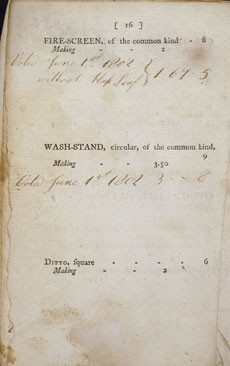 [ 16 ]
FIRE-SCREEN, of the common kind - 8
Making - - 2
June 1st 1802
without Flap Leaf } 1 67 - 5
WASH-STAND, circular, of the common kind,
9
Making - - 3.50
June 1st 1802 3 -
DITTO, square - - - - - 6
Making - - 2